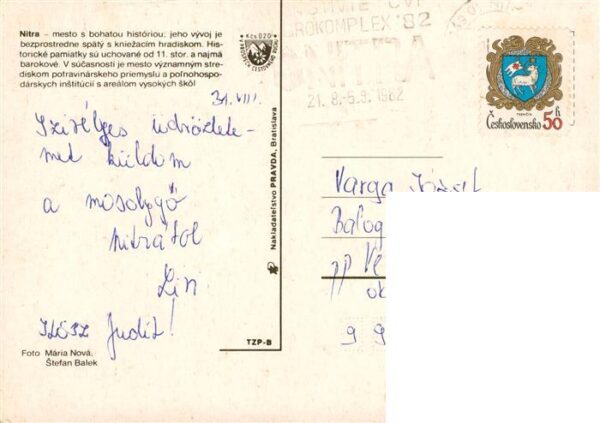 Nitra – mesto s bohatou históriou; jeho vývoj je
bezprostredne spätý s kniežacím hradiskom. His-
torické pamiatky sú uchované od 11. stor. a najmä
barokové. V súčasnosti je mesto významným stre-
diskom potravinárskeho priemyslu a poľnohospo-
dárskych inštitúcií s areálom vysokých škôl
Kčs 0,20
31. VIII.
Szívélyes üdvözlete-
met küldöm
a mosolygó
Nitrától
Judit!
Foto Mária Nová,
Štefan Balek
TZP-B
Nakladateľstvo PRAVDA, Bratislava
ROKOMPLEX '82
NITRA
21. 8.-5.9. 1982
Československo 50 h
Varga József
Balog
pp Ve
ok
9 9